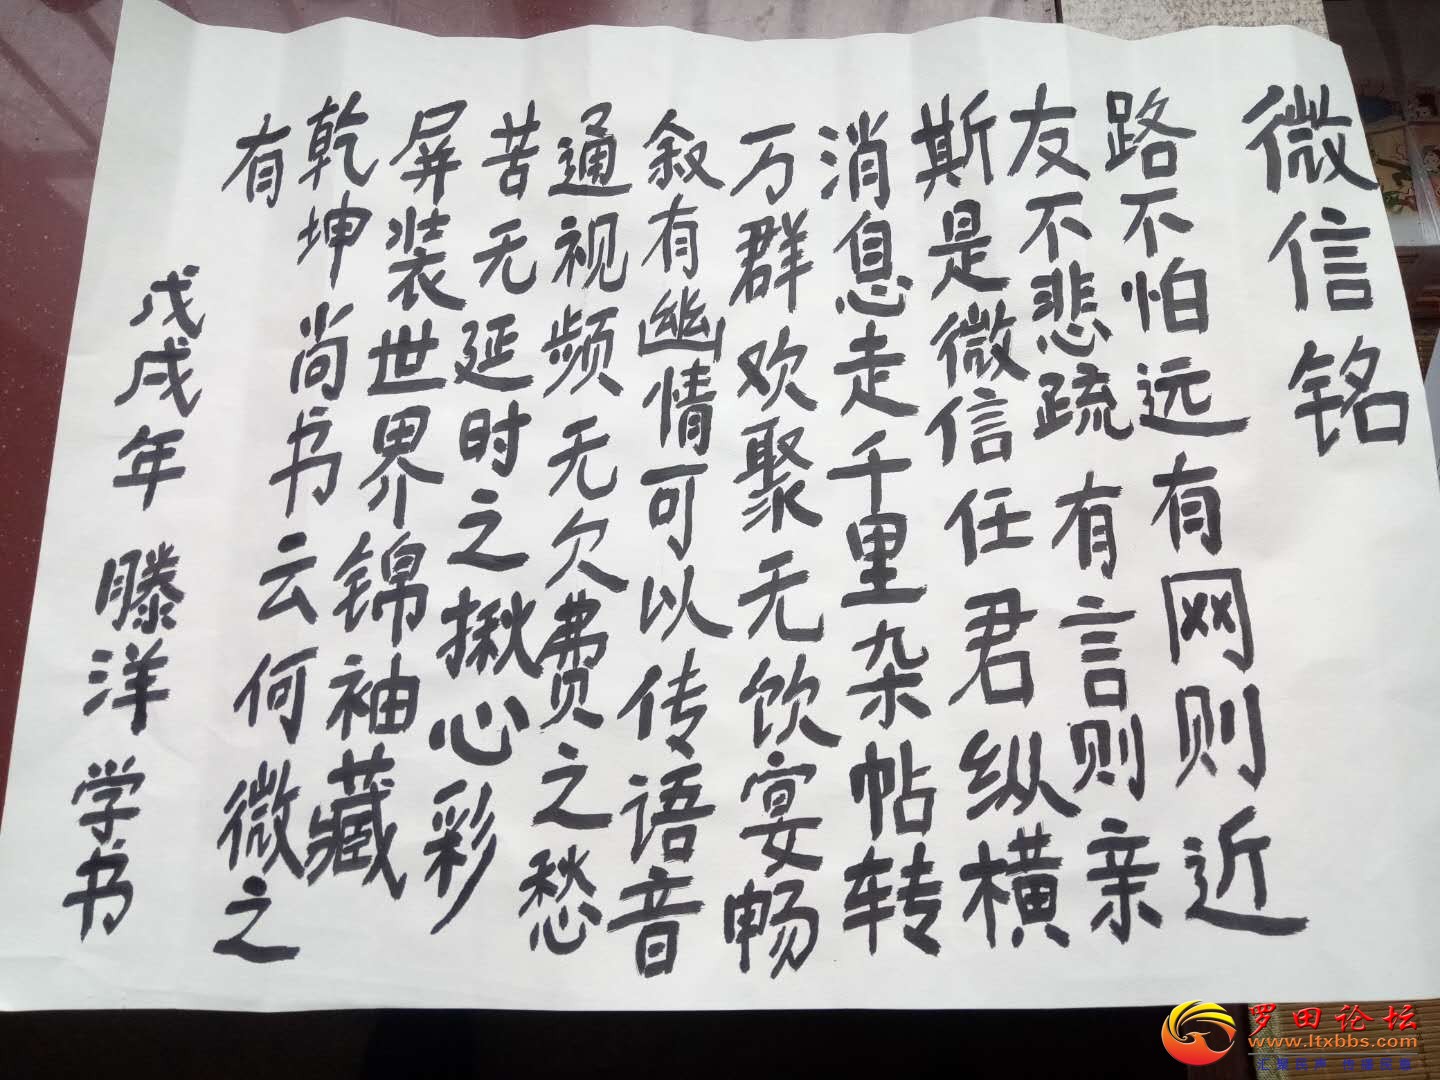 微信铭
路不怕远有网则近
友不悲疏有言则亲
斯是微信任君纵横
消息走千里杂帖转
万群欢聚无饮宴畅
叙有幽情可以传语音
通视频无欠费之愁
苦无延时之揪心彩
屏装世界锦袖藏
乾坤尚书云何微之
有
戊戌年 滕洋学书
罗田论坛
www.ltxbbs.com